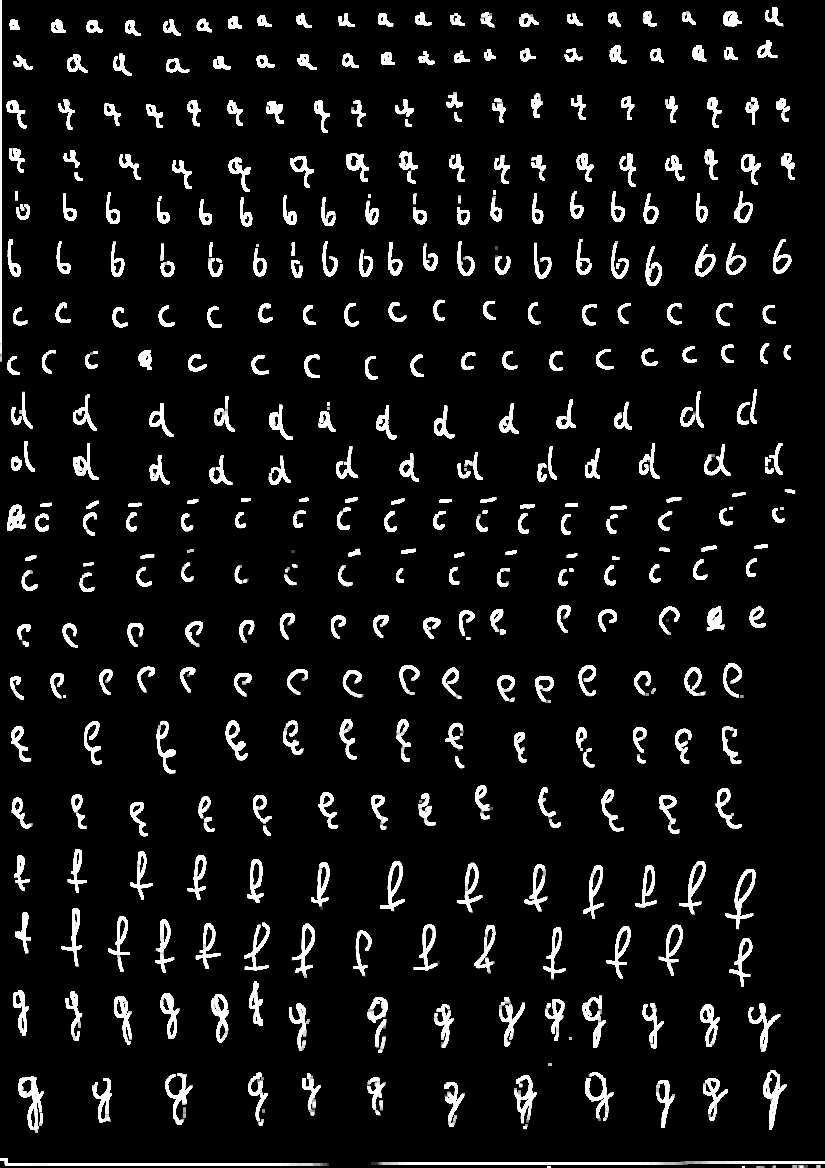 a a a a a a a a a a a a a a a a a a a a a
a a a a a a a a a a a a a a a a a a a
ą ą ą ą ą ą ą ą ą ą ą ą ą ą ą ą ą ą ą
ą ą ą ą ą ą ą ą ą ą ą ą ą ą ą ą ą
b b b b b b b b b b b b b b b b b b
b b b b b b b b b b b b b b b b b b b b
c c c c c c c c c c c c c c c c c
c c c c c c c c c c c c c c c c c
d d d d d d d d d d d d d
d d d d d d d d d d d d d
ć ć ć ć ć ć ć ć ć ć ć ć ć ć ć ć
ć ć ć ć ć ć ć ć ć ć ć ć ć ć ć
e e e e e e e e e e e e e e e
e e e e e e e e e e e e e e e e
ę ę ę ę ę ę ę ę ę ę ę ę ę
ę ę ę ę ę ę ę ę ę ę ę ę ę
f f f f f f f f f f f f f
f f f f f f f f f f f f f f
g g g g g g g g g g g g g g g
g g g g g g g g g g g g